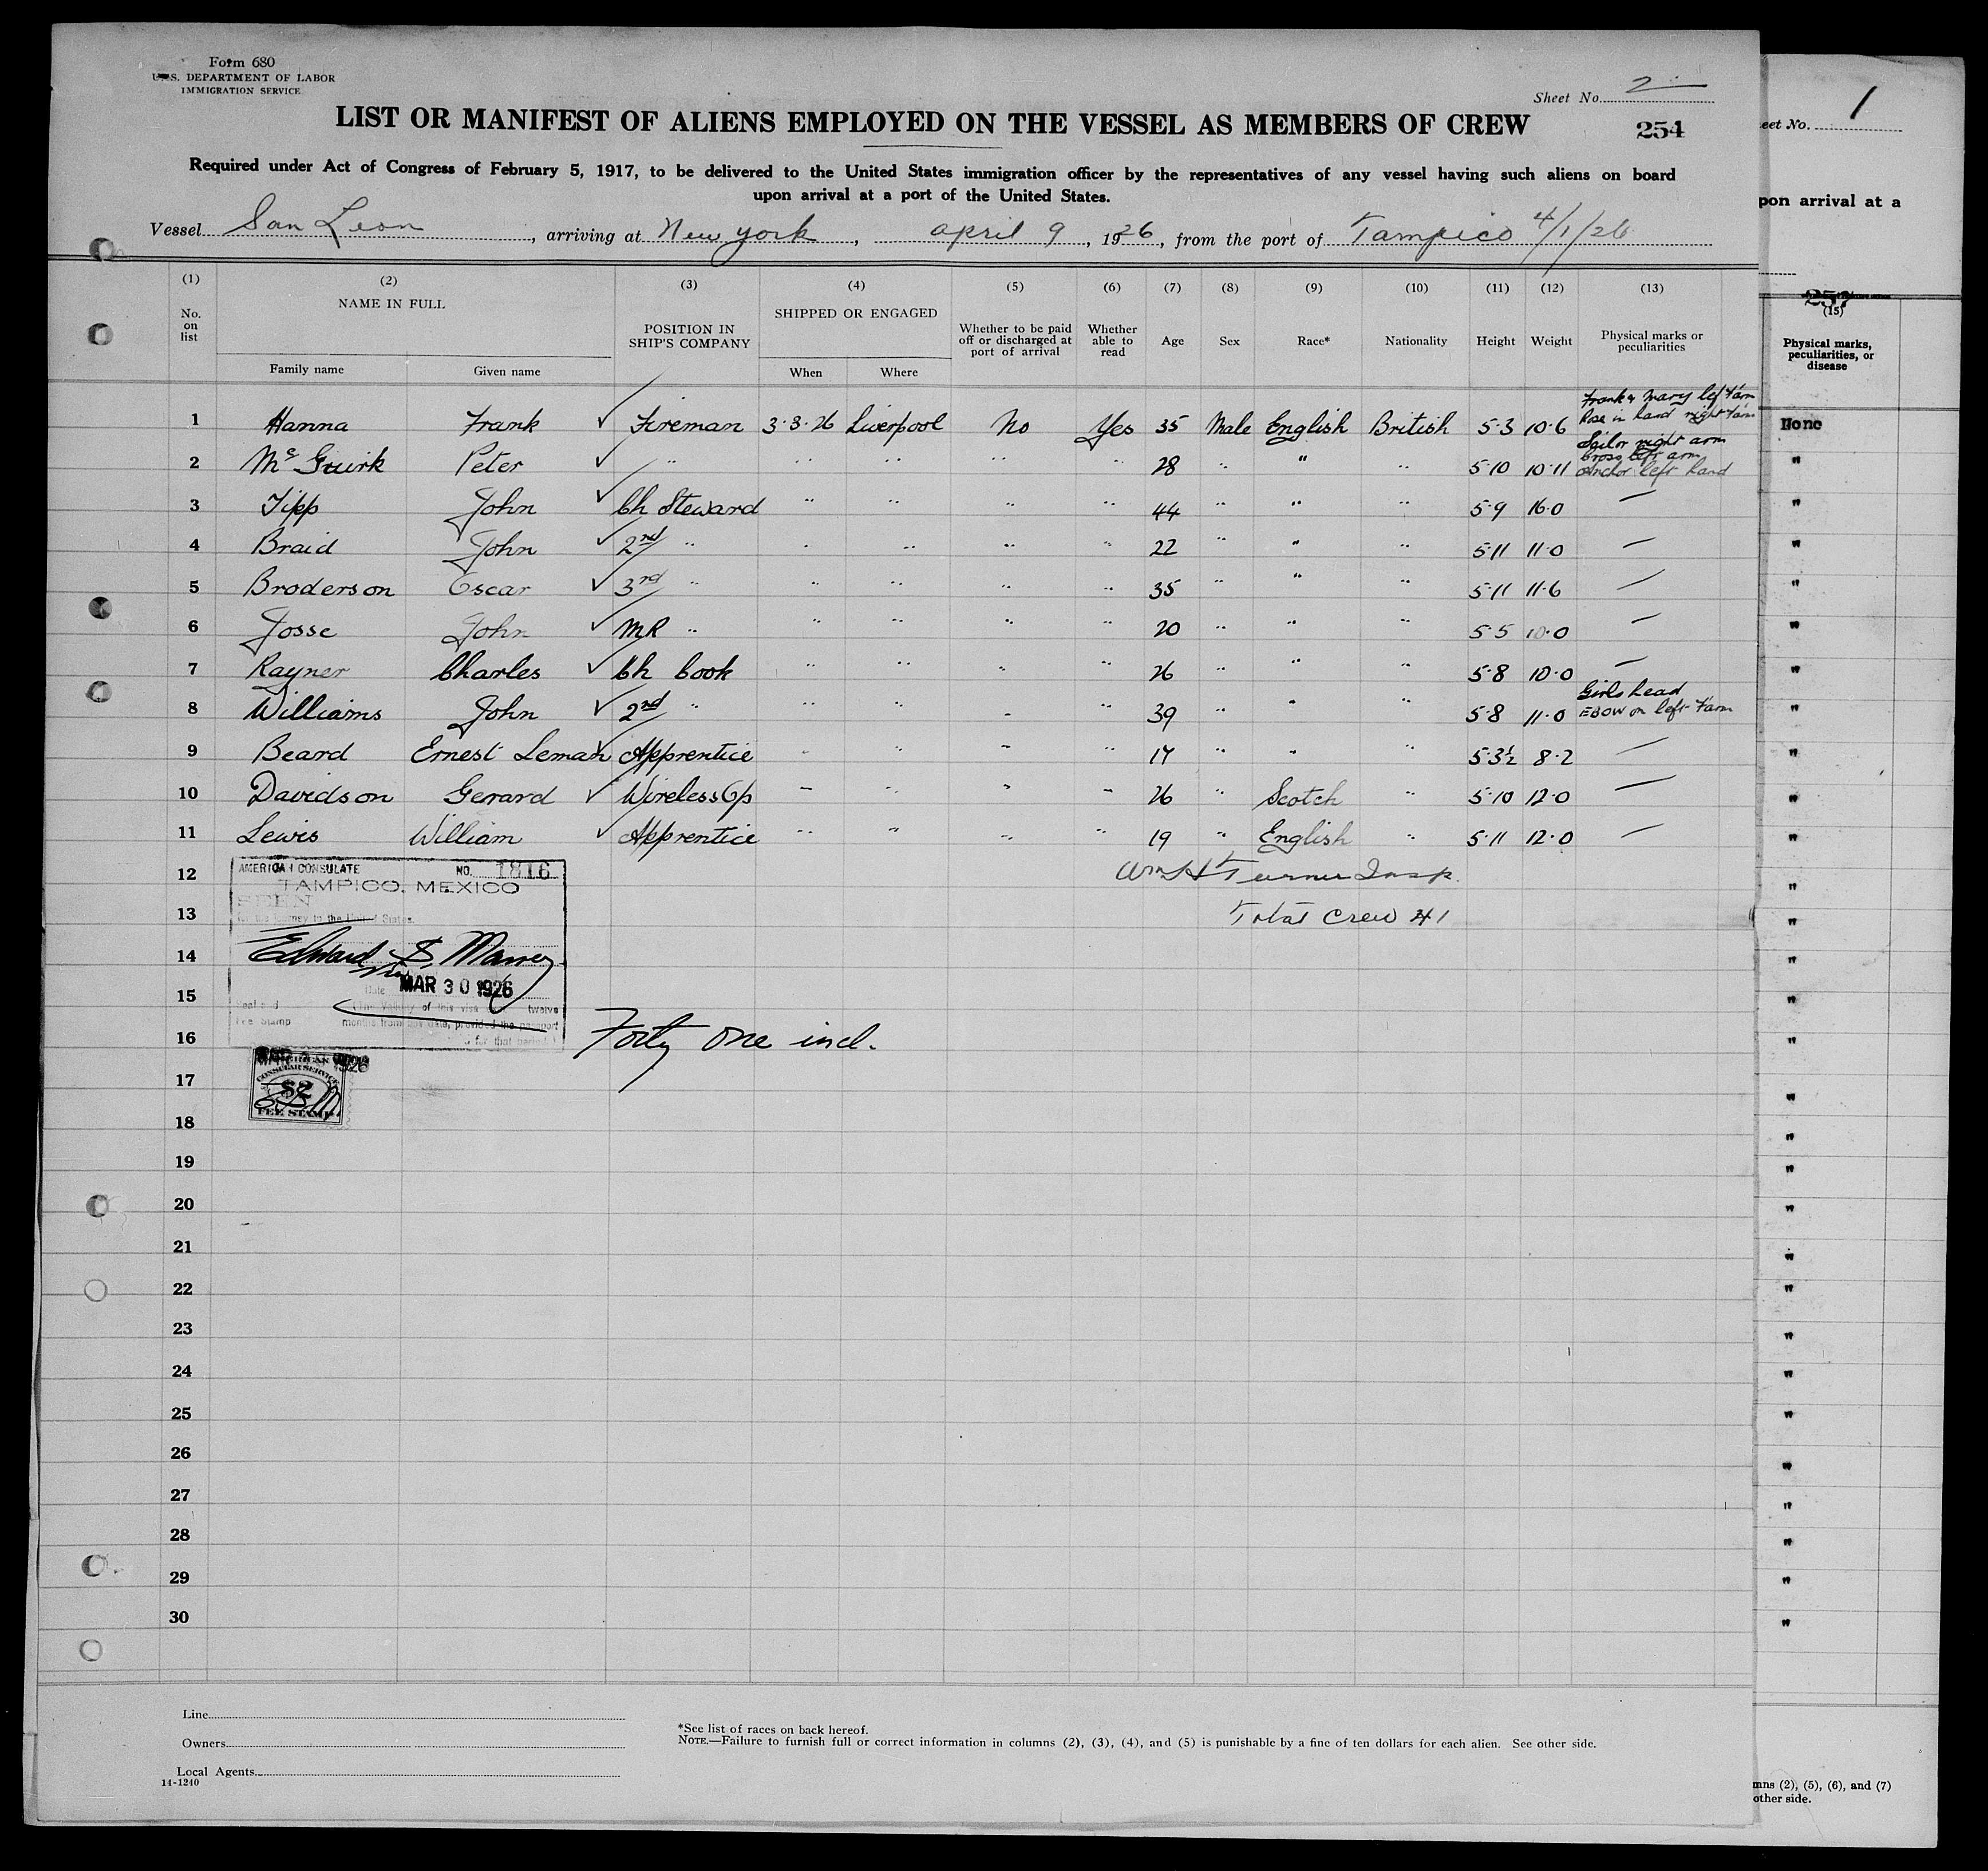 Form 680
U.S. DEPARTMENT OF LABOR
IMMIGRATION SERVICE
Sheet No. 2
LIST OR MANIFEST OF ALIENS EMPLOYED ON THE VESSEL AS MEMBERS OF CREW
254
Required under Act of Congress of February 5, 1917, to be delivered to the United States immigration officer by the representatives of any vessel having such aliens on board
upon arrival at a port of the United States.
Vessel San Leon, arriving at New York, April 9, 1926, from the port of Tampico 4/1/26
(1) (2) (3) (4) (5) (6) (7) (8) (9) (10) (11) (12) (13)
No. on list NAME IN FULL POSITION IN SHIP'S COMPANY SHIPPED OR ENGAGED Whether to be paid off or discharged at port of arrival Whether able to read Age Sex Race* Nationality Height Weight Physical marks or peculiarities
Family name Given name When Where
Frank & Mary left f'arm
Rose in hand right f'arm
1 Hanna Frank ✓ Fireman 3·3·26 Liverpool No Yes 35 Male English British 5·3 10·6
Sailor right arm
Cross left arm
2 McGuirk Peter ✓ " " " " " 28 " " " 5·10 10·11 Anchor left hand
3 Tipp John ✓ Ch Steward " " " " 44 " " " 5·9 16·0 —
4 Braid John ✓ 2nd " " " " " 22 " " " 5·11 11·0 —
5 Broderson Oscar ✓ 3rd " " " " " 35 " " " 5·11 11·6 —
6 Josse John ✓ MR " " " " " 20 " " " 5·5 10·0 —
7 Rayner Charles ✓ Ch Cook " " " " 26 " " " 5·8 10·0 —
Girls head
8 Williams John ✓ 2nd " " " " " 39 " " " 5·8 11·0 EBOW on left f'arm
9 Beard Ernest Leman ✓ Apprentice " " " " 17 " " " 5·3½ 8·2 —
10 Davidson Gerard ✓ Wireless Op " " " " 26 " Scotch " 5·10 12·0 —
11 Lewis William ✓ Apprentice " " " " 19 " English " 5·11 12·0 —
12 Wm H Turner Insp.
13 Total Crew 41
14
15
16 Forty one incl.
17
18
19
20
21
22
23
24
25
26
27
28
29
30
AMERICAN CONSULATE NO. 1816
TAMPICO, MEXICO
SEEN
for the journey to the United States.
Edward S.
Date MAR 30 1926
validity of this visa twelve
months from date, provided the passport
for that period.)
Fee Stamp
1926
AMERICAN
CONSULAR SERVICE
$2
FEE STAMP
Line
Owners
Local Agents
14-1240
*See list of races on back hereof.
NOTE.—Failure to furnish full or correct information in columns (2), (3), (4), and (5) is punishable by a fine of ten dollars for each alien. See other side.
eet No. 1
pon arrival at a
257
(15)
Physical marks, peculiarities, or disease
None
"
"
"
"
"
"
"
"
"
"
"
"
"
"
"
"
"
"
"
"
"
"
"
"
"
"
"
"
"
mns (2), (5), (6), and (7)
other side.